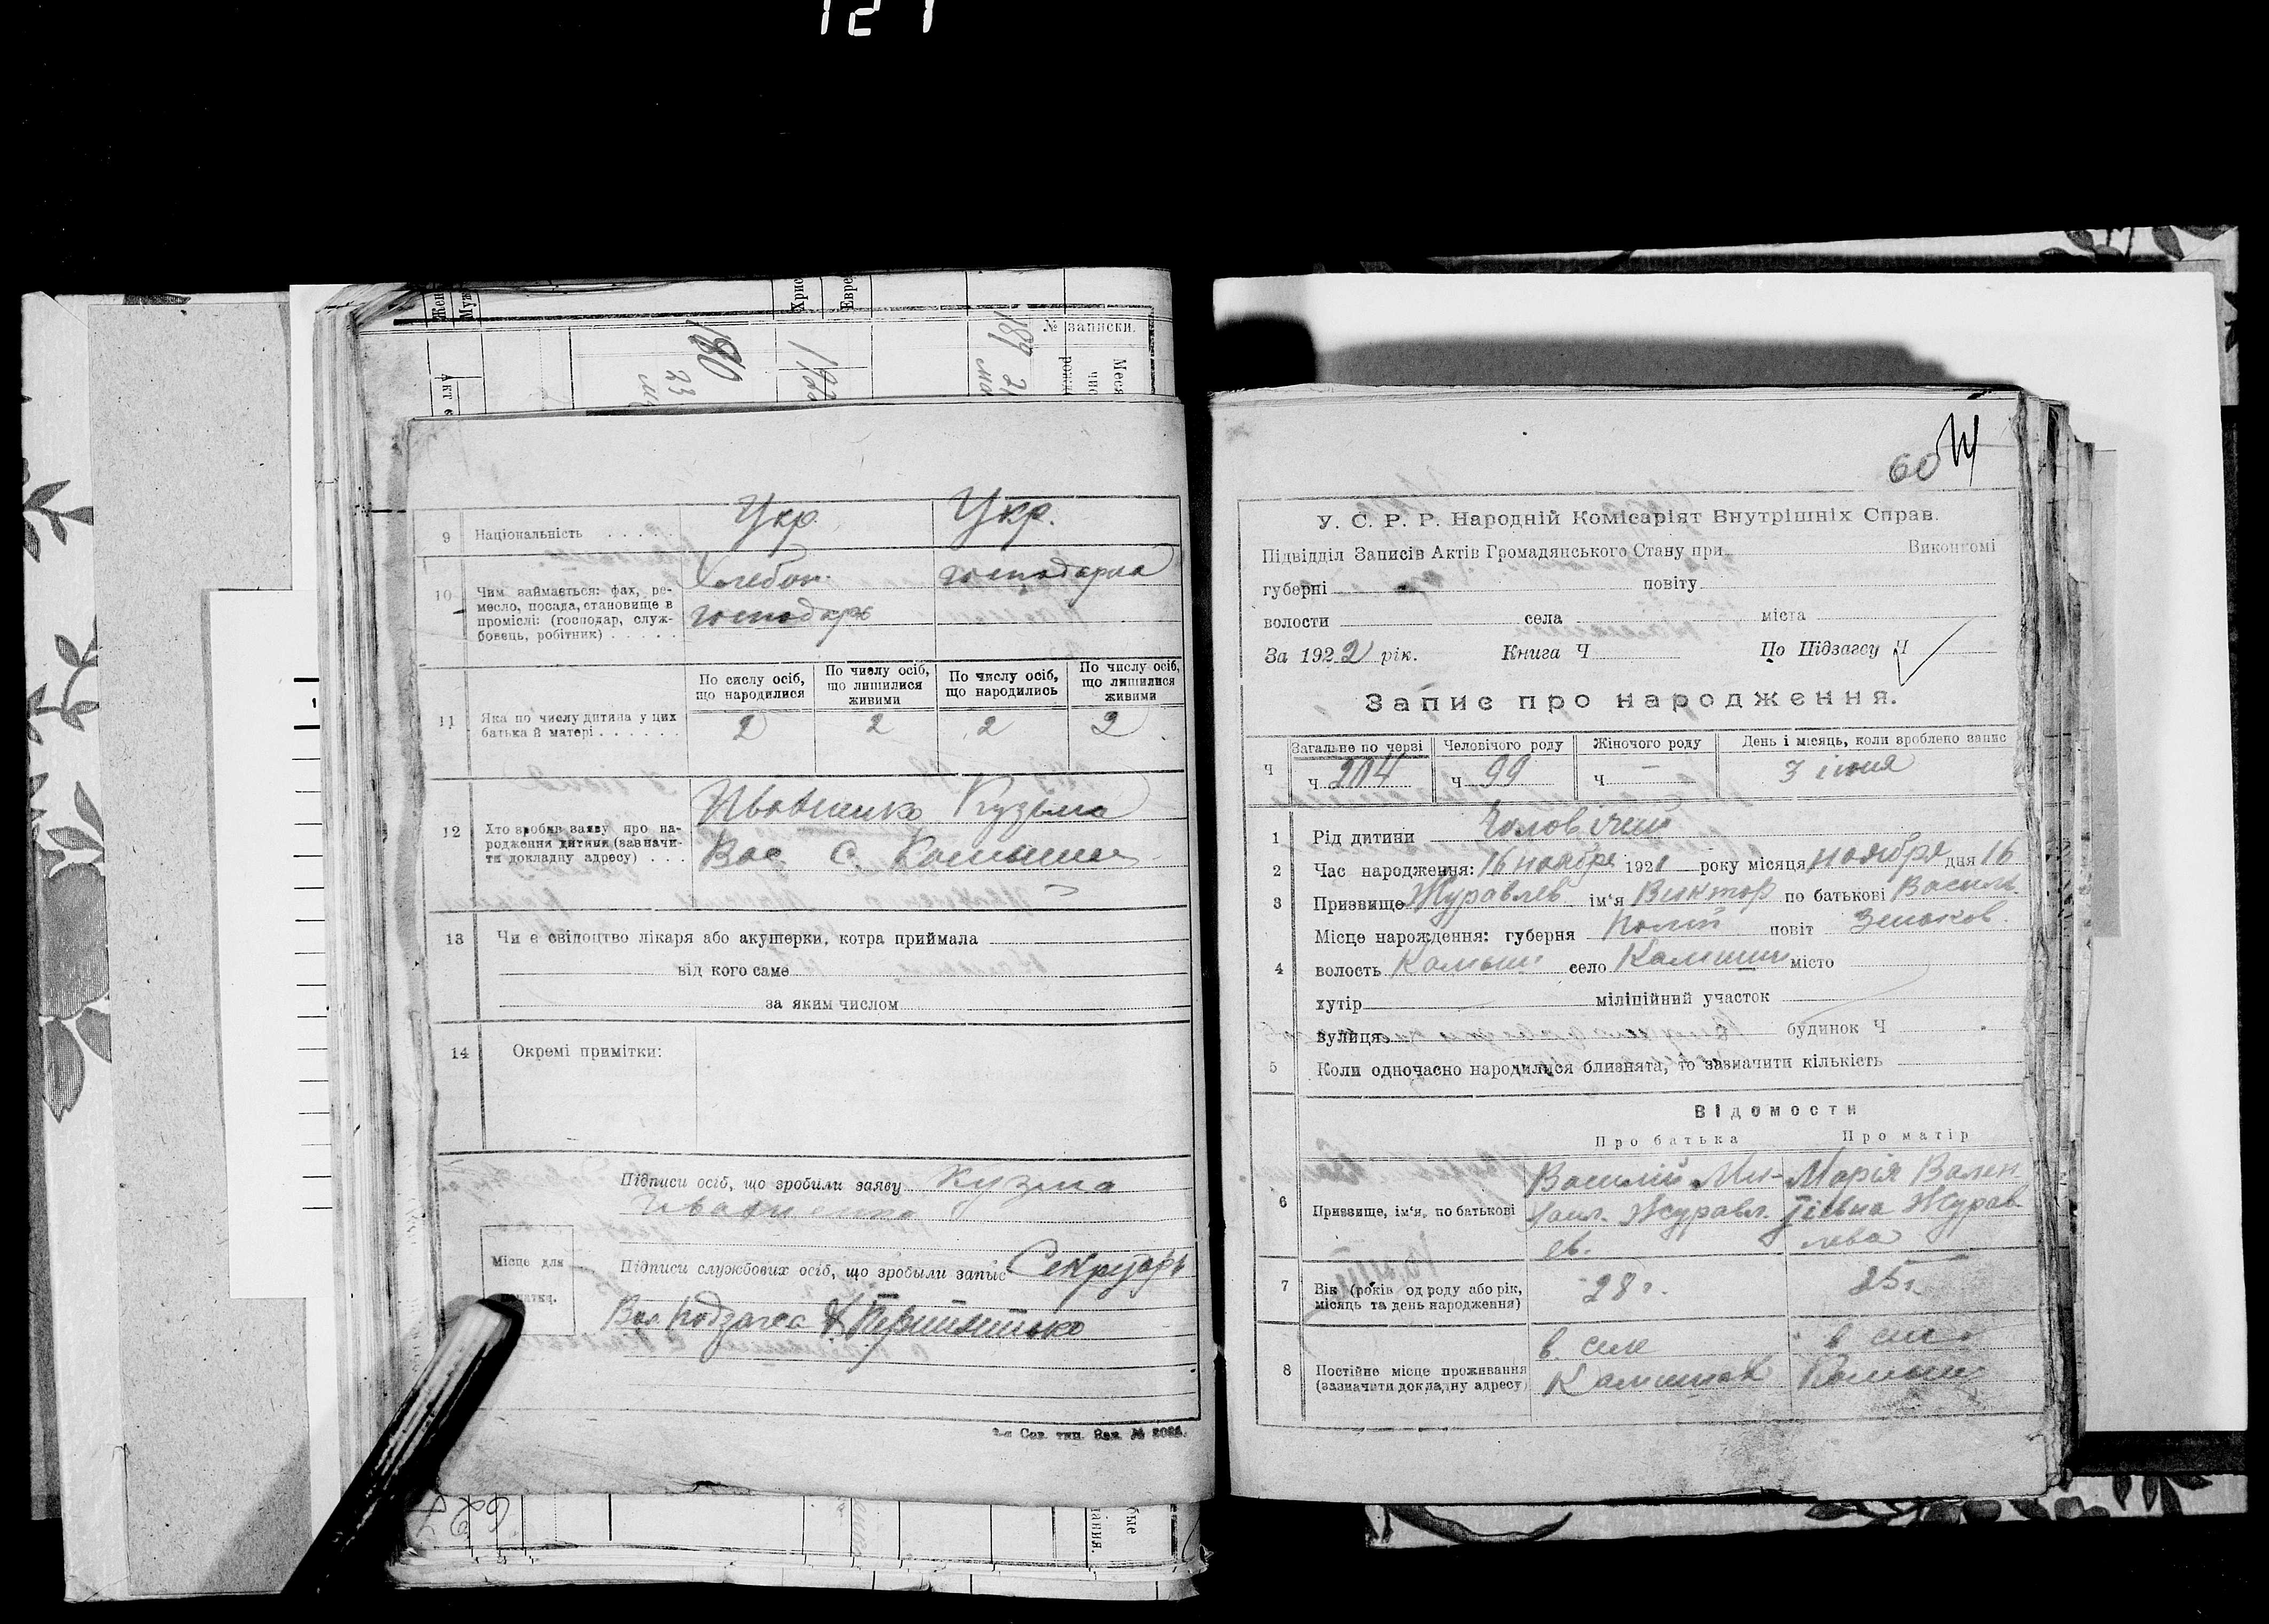 121
Жен
Муж
Хрис
Евре
№ записки.
180
23
192
189
21
Меся
чис
Акт
9 Національність Укр. Укр.
10 Чим займається: фах, ре-
месло, посада, становище в
промислі: (господар, служ-
бовець, робітник)
Хлебоп. господарка
господарь
По сислу осіб,
що народилися
По числу осіб,
що лишилися
живими
По числу осіб,
що народились
По числу осіб,
що лишилися
живими
11 Яка по числу дитина у цих
батька й матері
2 2 2 2
12 Хто зробив заяву про на-
родження дитини (зазначи-
ти докладну адресу)
Кузьма
Вас. с. Камыши
13 Чи є свідоцтво лікаря або акушерки, котра приймала
від кого саме
за яким числом
14 Окремі примітки:
Підписи осіб, що зробили заяву Кузма
Иваненко
Місце для
печатки.
Підписи службових осіб, що зробыли запис Секретарь
Вол Подзагса
2-я Сов. тип. Зак. №
62
60
У. С. Р. Р. Народній Комісаріят Внутрішніх Справ.
Підвідділ Записів Актів Громадянського Стану при Виконкомі
губерні повіту
волости села міста
За 1922 рік. Книга Ч По Підзагсу Ч
Запис про народження.
Ч Загальне по черзі Человічого роду Жіночого роду День і місяць, коли зроблено запис
Ч 204 Ч 99 Ч — 3 июня
1 Рід дитини Чоловічий
2 Час народження: 16 ноября 1921 року місяця ноября дня 16
3 Призвище Журавлев ім'я Виктор по батькові Василь.
Місце нарождення: губерня Полт. повіт Зеньков.
4 волость Камыш село Камыши місто
хутір міліційний участок
вулиця будинок Ч
5 Коли одночасно народилися близнята, то зазначити кількість
Відомости
Про батька Про матір
6 Призвище, ім'я, по батькові
Василий Ми- Марія Вален
хаил. Журавл. тівна Журав.
ев. лева
7 Вік (років од роду або рік,
місяць та день народження)
28 г. 25 г.
8 Постійне місце проживання
(зазначити докладну адресу)
в. селе в селе
Камышах Камыши